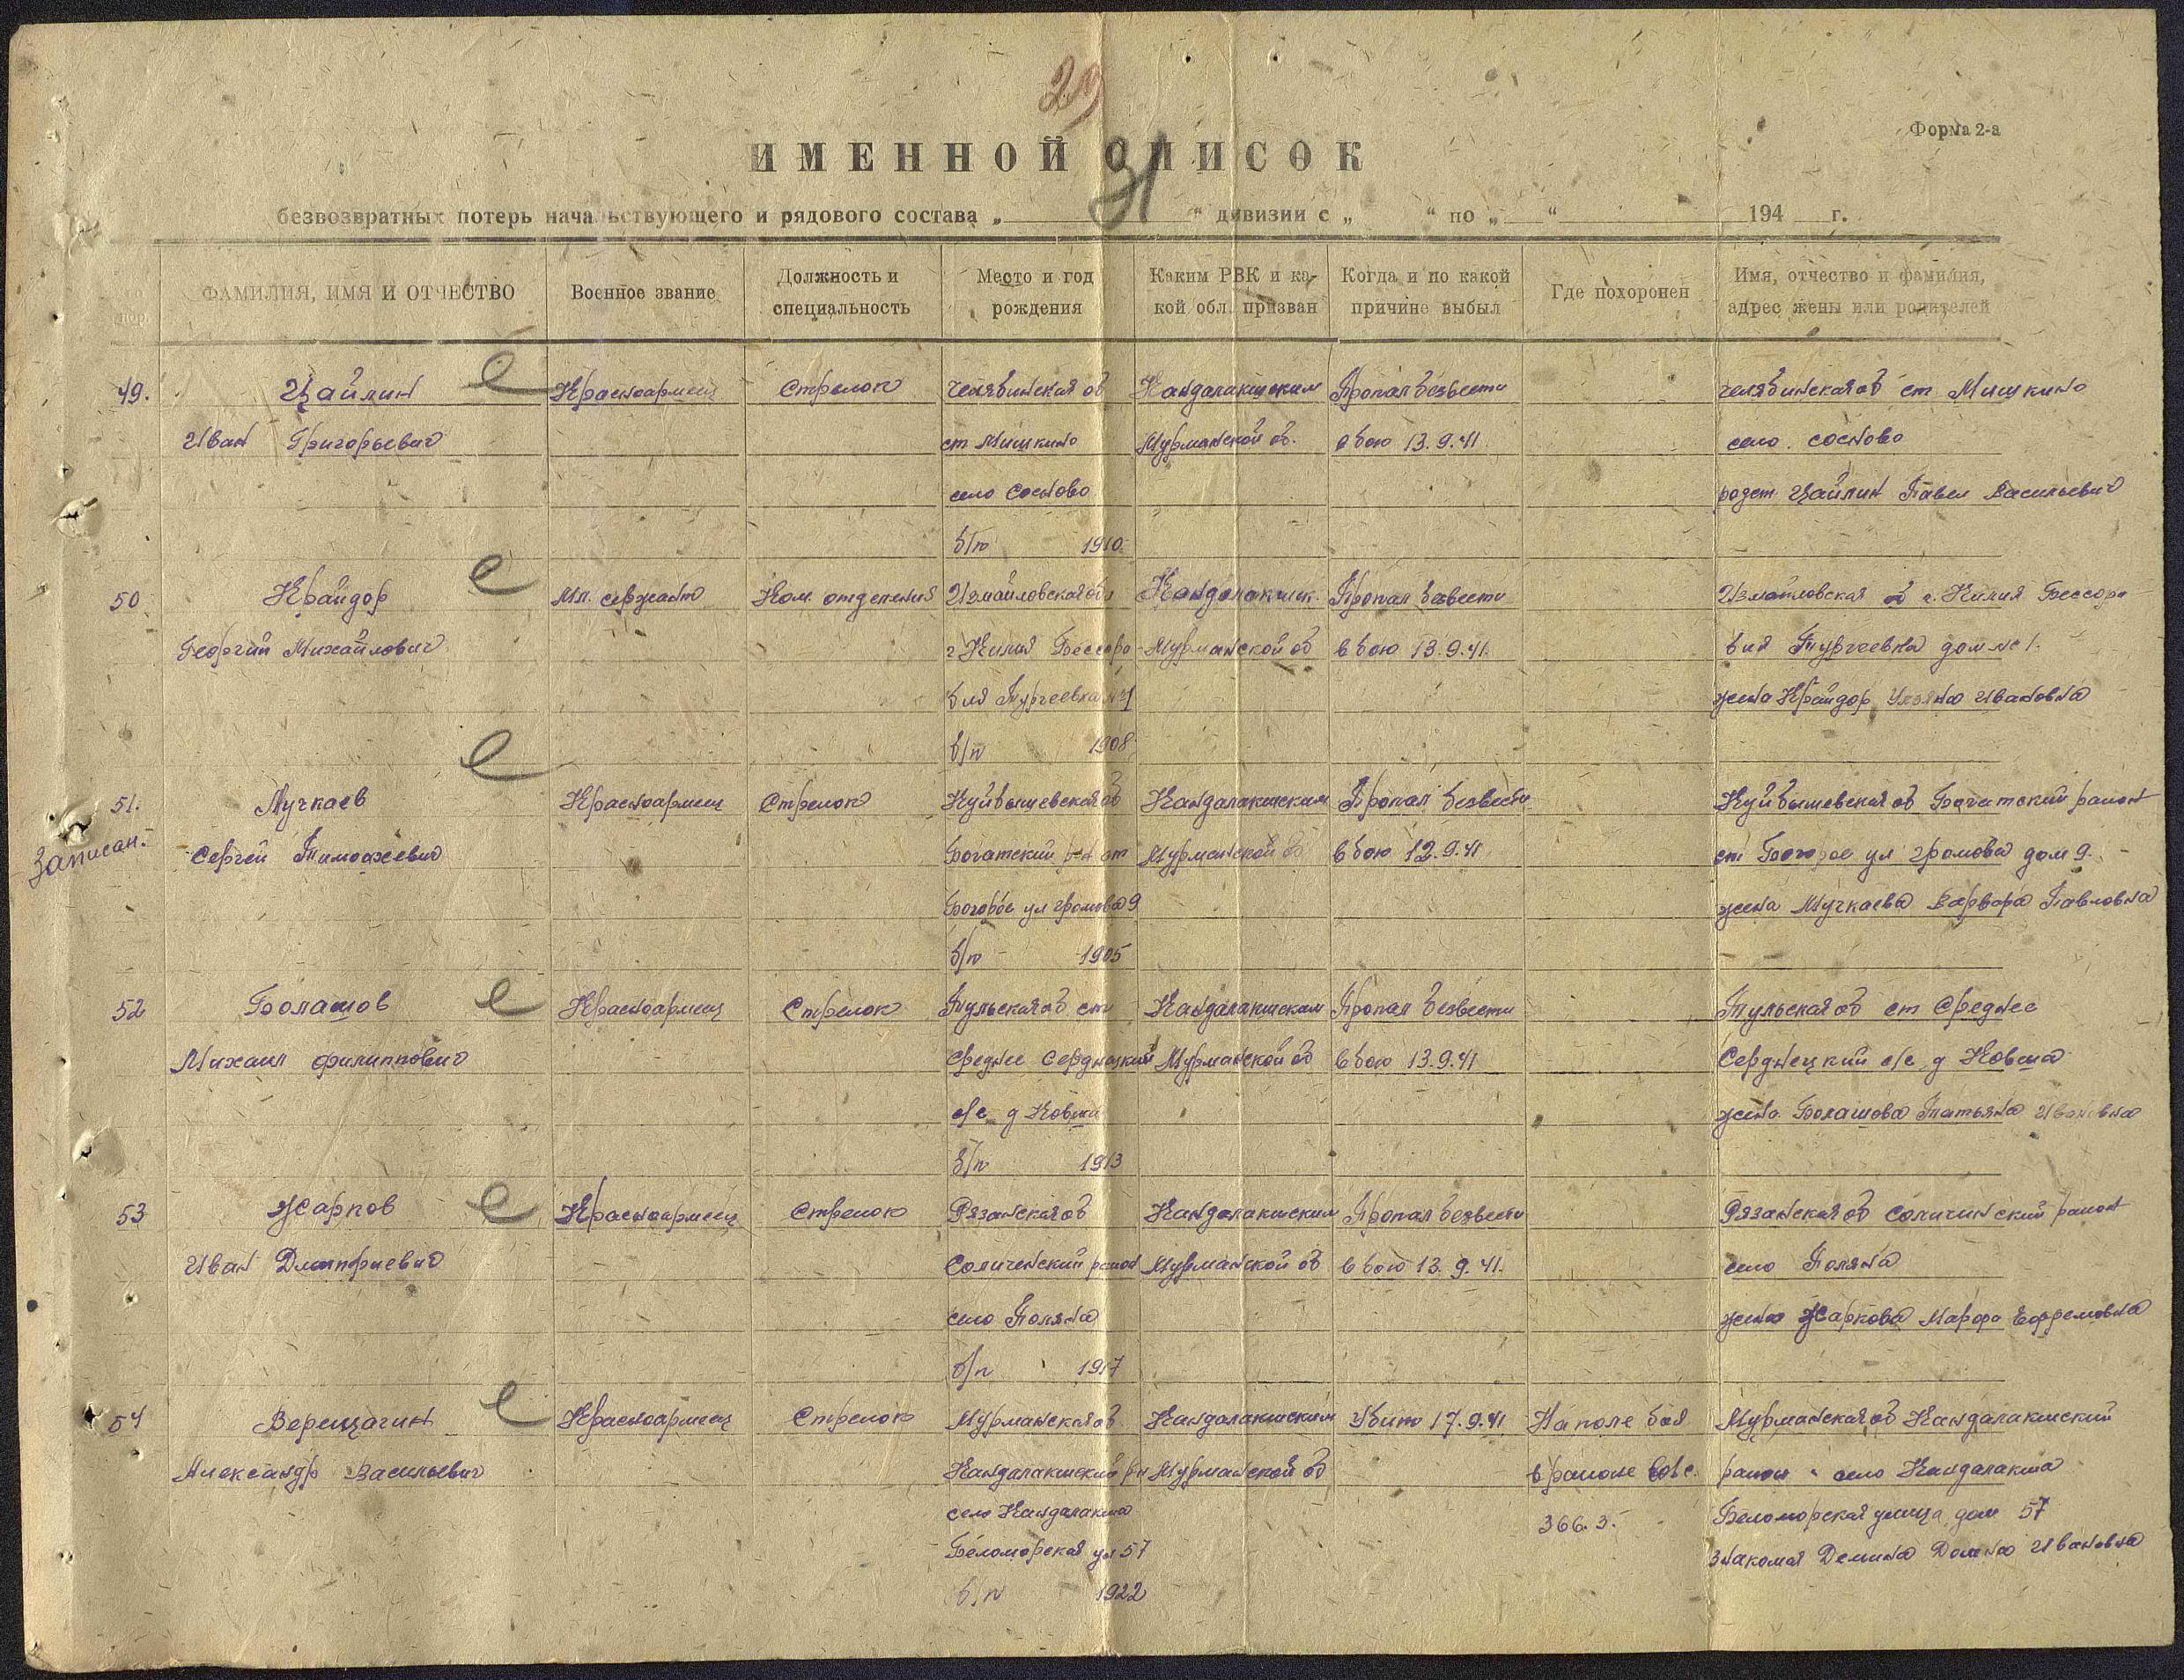 29
Форма 2-а
ИМЕННОЙ СПИСОК
31
безвозвратных потерь начальствующего и рядового состава „ “ дивизии с „ “ по „ “ 194 г.
ФАМИЛИЯ, ИМЯ И ОТЧЕСТВО Военное звание Должность и специальность Место и год рождения Каким РВК и какой обл. призван Когда и по какой причине выбыл Где похоронен Имя, отчество и фамилия, адрес жены или родителей
49. Цайлин Красноармеец Стрелок Челябинская об Кандалакшским Пропал безвести Челябинская об ст Мишкино
Иван Григорьевич ст Мишкино Мурманской об. в бою 13.9.41 село Сосново
село Сосново родст. Цайлин Павел Васильевич
б/п 1910.
50 Крайдор Мл. сержант Ком. отделения Измайловская обл Кандалакшск. Пропал безвести Измаиловская об г. Килия Бессора
Георгий Михайлович г Килия Бессора- Мурманской об в бою 13.9.41. бия Тургеевка дом №1.
бия Тургеевка №1 жена Крайдор Ивановна
б/п 1908
51. Мучкаев Красноармеец Стрелок Куйбышевская об Кандалакшским Пропал безвести Куйбышевская об Богатский район
Записан. Сергей Тимофеевич Богатский р-н ст Мурманской об в бою 12.9.41 ст ул Громова дом 9.
ул Громова 9 жена Мучкаева Варвара Павловна
б/п 1905
52 Болашов Красноармеец Стрелок Тульская об ст Кандалакшским Пропал безвести Тульская об ст Среднее
Михаил Филиппович Среднее Серднецкий Мурманской об в бою 13.9.41 Серднецкий с/с д Ковша
с/с д Ковша жена Болашова Татьяна Ивановна
б/п 1913
53 Жарков Красноармеец Стрелок Рязанская об Кандалакшским Пропал безвести Рязанская об Соличинский район
Иван Дмитриевич Соличенский район Мурманской об в бою 13.9.41. село Поляна
село Поляна жена Жаркова Марфа Ефремовна
б/п 1917
54 Верещагин Красноармеец Стрелок Мурманская об Кандалакшским Убит 17.9.41 На поле боя Мурманская об Кандалакшский
Александр Васильевич Кандалакшский рн Мурманской об в районе район село Кандалакша
село Кандалакша 366.3. Беломорская улица дом 57
Беломорская ул 57 знакомая Демина Ивановна
б/п 1922